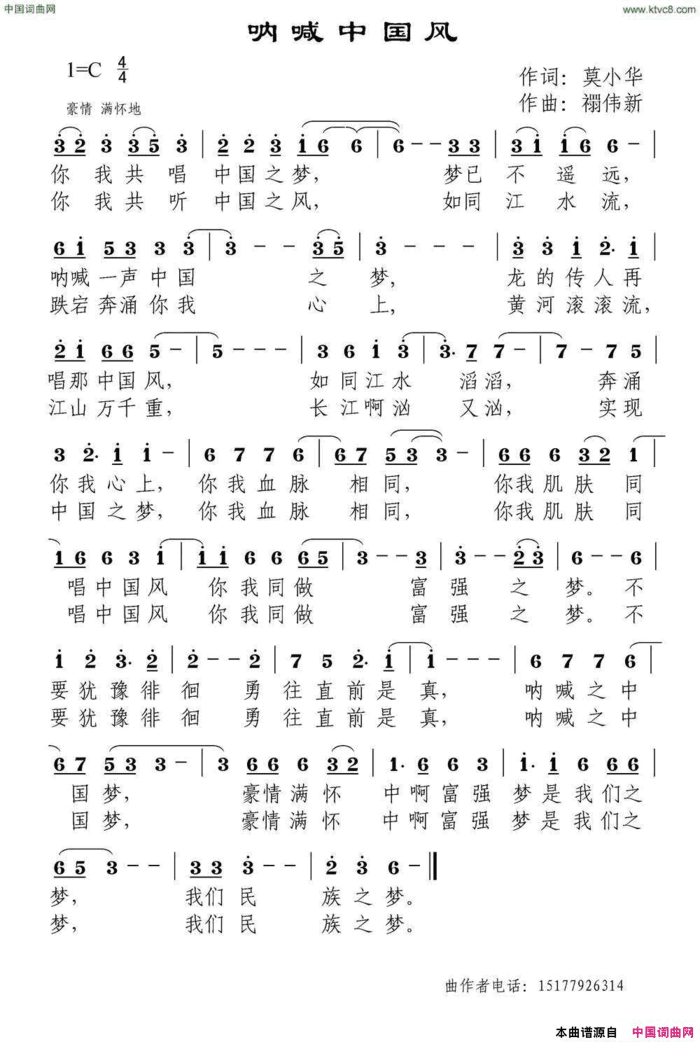 中国词曲网
www.ktvc8.com
呐喊中国风
1=C 4/4
作词：莫小华
豪情 满怀地
作曲：禤伟新
3 2 3 3 5 3 | 2 2 3 1 6 6 | 6 - - 3 3 | 3 1 1 6 6 - |
你我共唱中国之梦，梦已不遥远，
你我共听中国之风，如同江水流，
6 1 5 3 3 3 | 3 - - 3 5 | 3 - - - | 3 3 1 2· 1 |
呐喊一声中国之梦，龙的传人再
跌宕奔涌你我心上，黄河滚滚流，
2 1 6 6 5 - | 5 - - - | 3 6 1 3 | 3· 7 7 - | 7 - 7 5 |
唱那中国风，如同江水滔滔，奔涌
江山万千重，长江啊汹又汹，实现
3 2· 1 1 - | 6 7 7 6 | 6 7 5 3 3 - | 6 6 6 3 2 1 |
你我心上，你我血脉相同，你我肌肤同
中国之梦，你我血脉相同，你我肌肤同
1 6 6 3 1 | 1 1 6 6 6 5 | 3 - - 3 | 3 - - 2 3 | 6 - - 6 |
唱中国风你我同做富强之梦。不
唱中国风你我同做富强之梦。不
1 2 3· 2 | 2 - - 2 | 7 5 2· 1 | 1 - - - | 6 7 7 6 |
要犹豫徘徊勇往直前是真，呐喊之中
要犹豫徘徊勇往直前是真，呐喊之中
6 7 5 3 3 - | 3 6 6 6 3 2 | 1· 6 6 3 | 1· 1 6 6 6 |
国梦，豪情满怀中啊富强梦是我们之
国梦，豪情满怀中啊富强梦是我们之
6 5 3 - - | 3 3 3 - - | 2 3 6 - ‖
梦，我们民族之梦。
梦，我们民族之梦。
曲作者电话：15177926314
本曲谱源自 中国词曲网